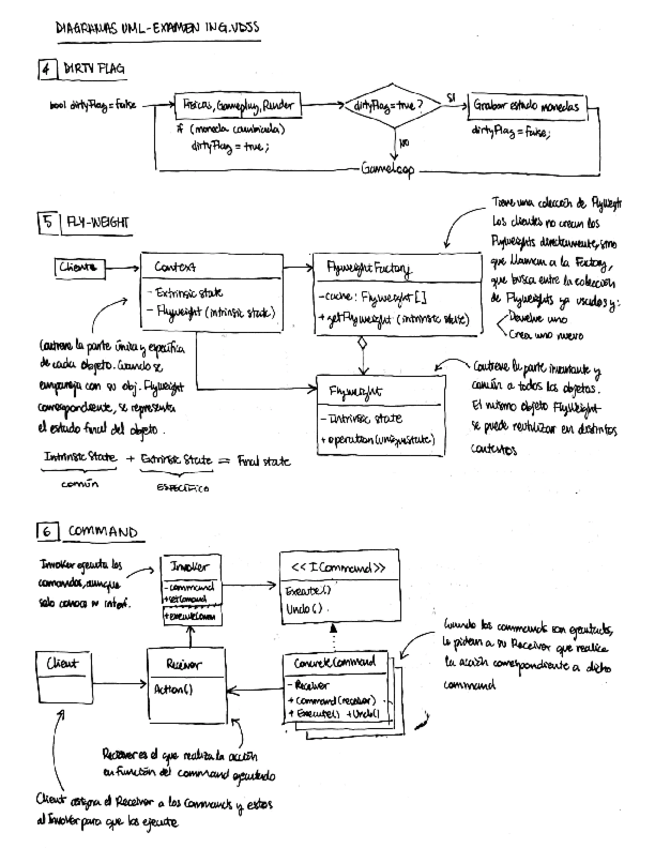 DIAGRAMAS UML-EXAMEN ING.VDJS
4 DIRTY FLAG
bool dirtyFlag = false
Físicas, Gameplay, Render
dirtyFlag = true?
SI
Grabar estado monedas
if (moneda cambiada)
dirtyFlag = true;
NO
dirtyFlag = false;
GameLoop
5 FLY-WEIGHT
Tiene una colección de Flyweight
Los clientes no crean los
Flyweights directamente, sino
que llaman a la Factory,
que busca entre la colección
de Flyweights ya usados y:
Devuelve uno
Crea uno nuevo
Cliente
Context
- Extrinsic state
- Flyweight (intrinsic state)
Flyweight Factory
- cache: Flyweight[]
+ getFlyweight (intrinsic state)
Contiene la parte única y específica
de cada objeto. Cuando se
empareja con su obj. Flyweight
correspondiente, se representa
el estado final del objeto.
Flyweight
- Intrinsic state
+ operation(uniqueState)
Contiene la parte invariante y
común a todos los objetos.
El mismo objeto FlyWeight
se puede reutilizar en distintos
contextos
Intrinsic State + Extrinsic State = Final state
común
ESPECÍFICO
6 COMMAND
Invoker ejecuta los
comandos, aunque
solo conoce su interf.
Invoker
- command
+ setCommand
+ executeComm
<< ICommand >>
Execute()
Undo()
Cuando los commands son ejecutados,
le piden a su Receiver que realice
la acción correspondiente a dicho
command
Client
Receiver
Action()
ConcreteCommand
- Receiver
+ Command(receiver)
+ Execute() + Undo()
Receiver es el que realiza la acción
en función del command ejecutado
Client asigna el Receiver a los Commands y estos
al Invoker para que los ejecute